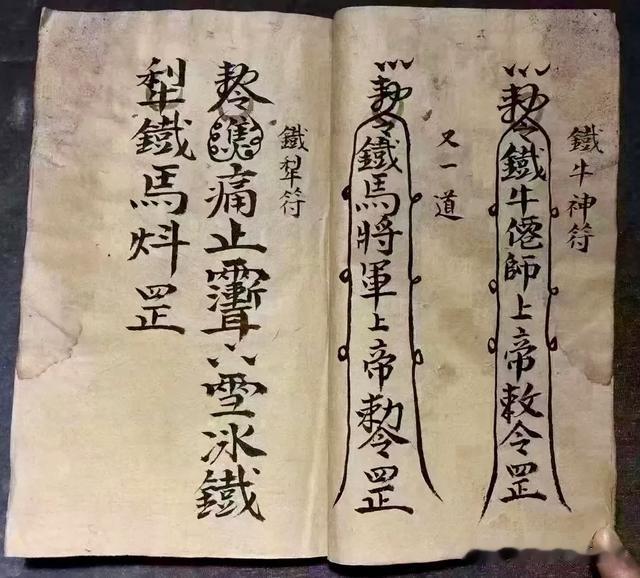 鐵牛神符
勅令鐵牛僊師上帝敕令罡
又一道
勅令鐵馬將軍上帝勅令罡
鐵犁符
勅令痛止雪冰鐵
犁鐵馬炓罡